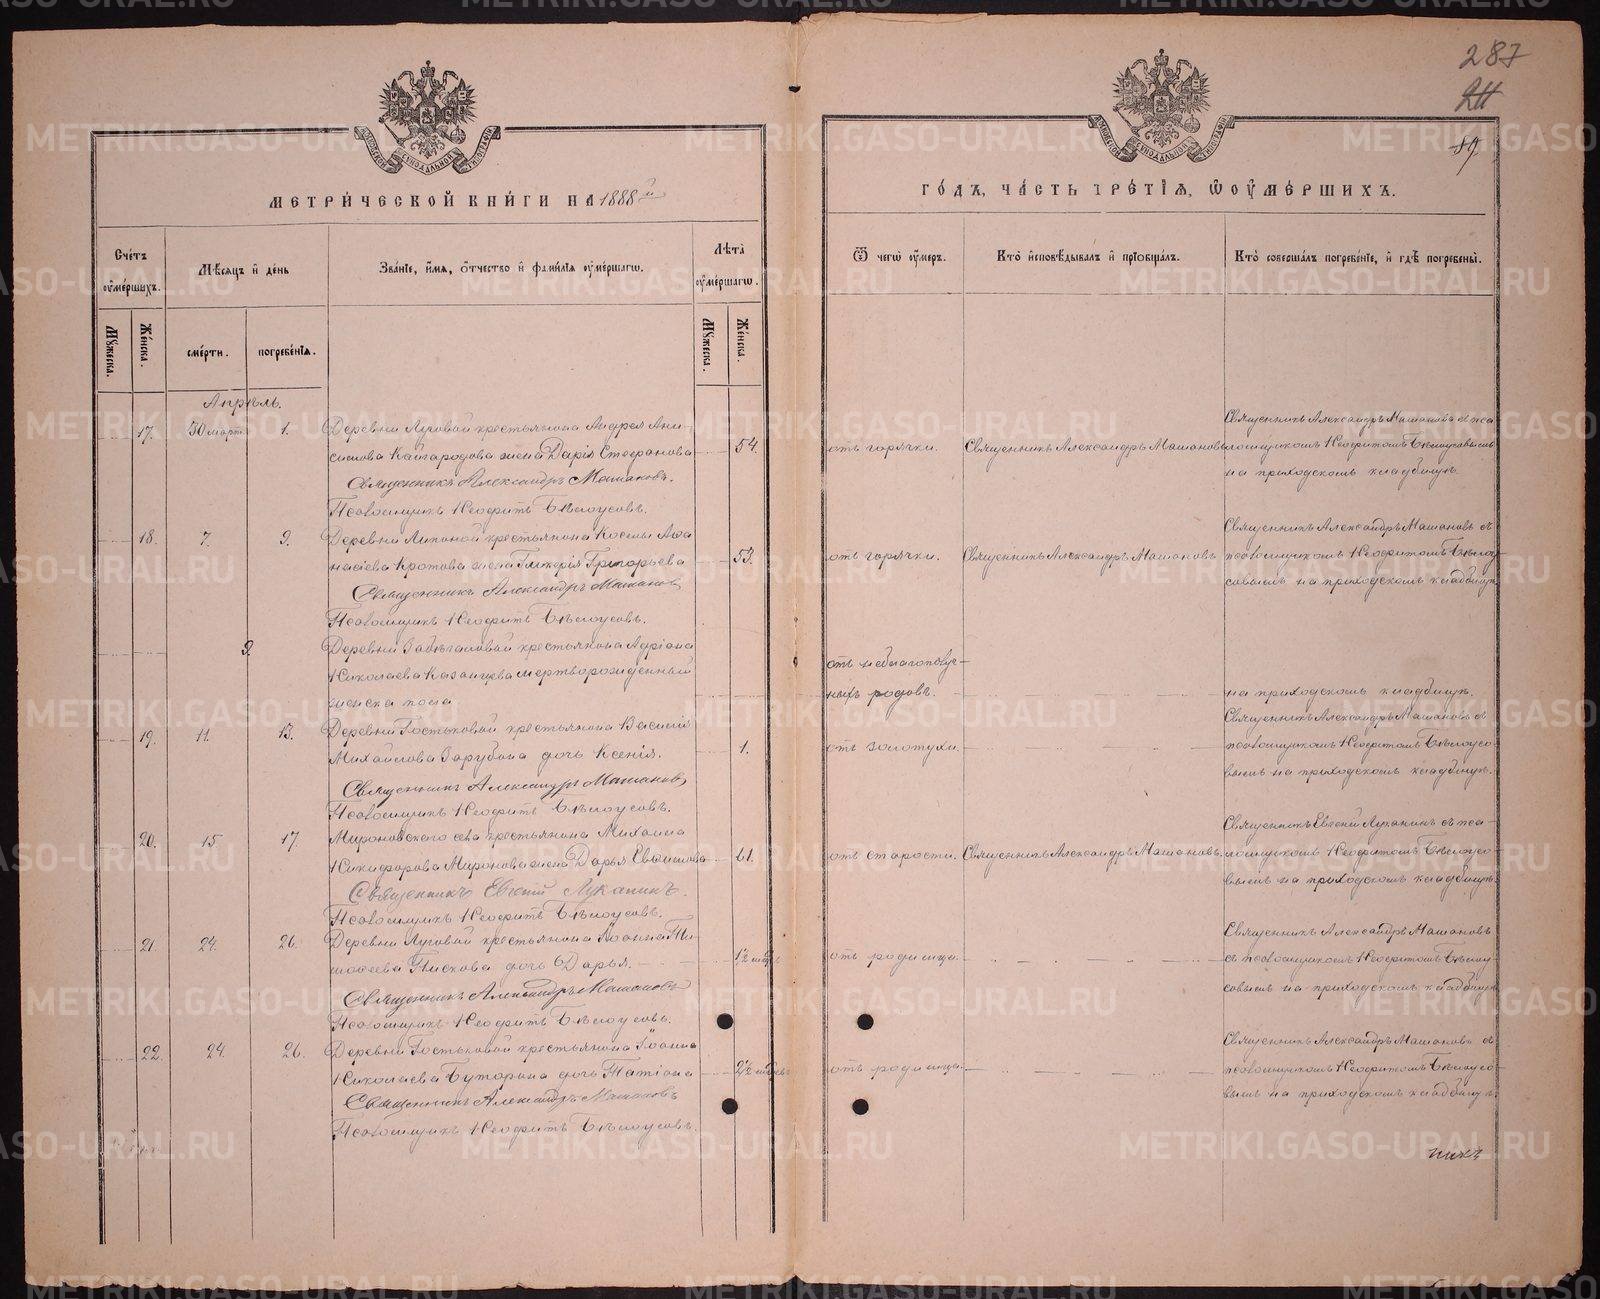 287
211
89
МЕТРИЧЕСКОЙ КНИГИ НА 1888й
ГОДЪ, ЧАСТЬ ТРЕТІЯ, Ѿ ОУМЕРШИХЪ.
Счетъ оумершихъ.
Мѣсяцъ и день
Званіе, имя, отчество и фамилія оумершагѡ.
Лѣта оумершагѡ.
Ѿ чегѡ оумеръ.
Кто исповѣдывалъ и пріобщалъ.
Кто совершалъ погребеніе, и гдѣ погребены.
Мужеска.
Женска.
смерти.
погребенія.
Мужеска.
Женска.
Апрѣль.
17. 30 март. 1. Деревни Луговой крестьянина Андрея Ани-
симова Кайгородова жена Дарія Стефанова 54.
отъ горячки. Священникъ Александръ Машановъ
Священникъ Александръ Машановъ съ пса-
ломщикомъ Неофитомъ Бѣлоусовымъ
на приходскомъ кладбищѣ.
Священникъ Александръ Машановъ.
Псаломщикъ Неофитъ Бѣлоусовъ.
18. 7. 9. Деревни Липиной крестьянина Космы Аѳа
насіева Кротова жена Гликерія Григорьева 53.
отъ горячки. Священникъ Александръ Машановъ
Священникъ Александръ Машановъ съ
псаломщикомъ Неофитомъ Бѣлоу-
совымъ на приходскомъ кладбищѣ.
Священникъ Александръ Машановъ
Псаломщикъ Неофитъ Бѣлоусовъ.
9. Деревни крестьянина Адріана
Николаева Казанцева мертворожденный
женска пола.
отъ неблагополуч-
ныхъ родовъ.
на приходскомъ кладбищѣ.
19. 11. 13. Деревни Гостьковой крестьянина Василія
Михайлова Зарубина дочь Ксенія. 1.
отъ золотухи.
Священникъ Александръ Машановъ съ
псаломщикомъ Неофитомъ Бѣлоусо-
вымъ на приходскомъ кладбищѣ.
Священникъ Александръ Машановъ
Псаломщикъ Неофитъ Бѣлоусовъ.
20. 15. 17. Мироновского села крестьянина Михаила
Никифорова Миронова жена Дарья 61.
отъ старости. Священникъ Александръ Машановъ.
Священникъ Евгеній Луканинъ съ пса-
ломщикомъ Неофитомъ Бѣлоусо-
вымъ на приходскомъ кладбищѣ.
Священникъ Евгеній Луканинъ.
Псаломщикъ Неофитъ Бѣлоусовъ.
21. 24. 26. Деревни Луговой крестьянина Іоанна Ти-
моѳеева Пискова дочь Дарья. 1½
отъ родимца.
Священникъ Александръ Машановъ
съ псаломщикомъ Неофитомъ Бѣлоу-
совымъ на приходскомъ кладбищѣ
Священникъ Александръ Машановъ
Псаломщикъ Неофитъ Бѣлоусовъ.
22. 24. 26. Деревни Гостьковой крестьянина Іоанна
Николаева Буторина дочь Татіана 2½
отъ родимца.
Священникъ Александръ Машановъ съ
псаломщикомъ Неофитомъ Бѣлоусо-
вымъ на приходскомъ кладбищѣ.
Священникъ Александръ Машановъ
Псаломщикъ Неофитъ Бѣлоусовъ.
METRIKI.GASO-URAL.RU